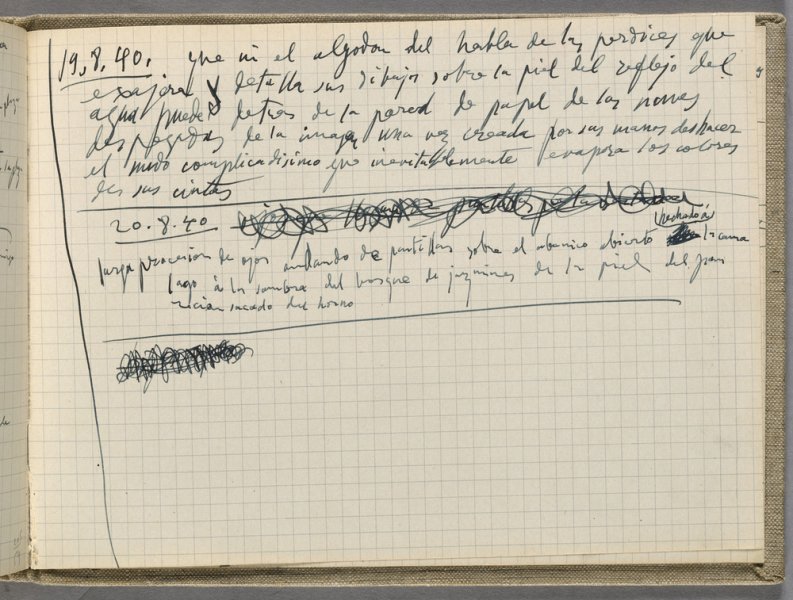 19.8.40. que ni el algodon del habla de las perdices que
exajera y detalla sus dibujos sobre la piel del reflejo del
agua puede detras de la pared de papel de las nonas
despegadas de la imagen una vez creada por sus manos deshacer
el nudo complicadisimo que inevitablemente evapora los colores
des sus cintas
20.8.40
larga procesion de ojos andando de puntillas sobre el abanico abierto hechado á la cama
lago á la sombra del bosque de jazmines de la piel del pan
recien sacado del horno